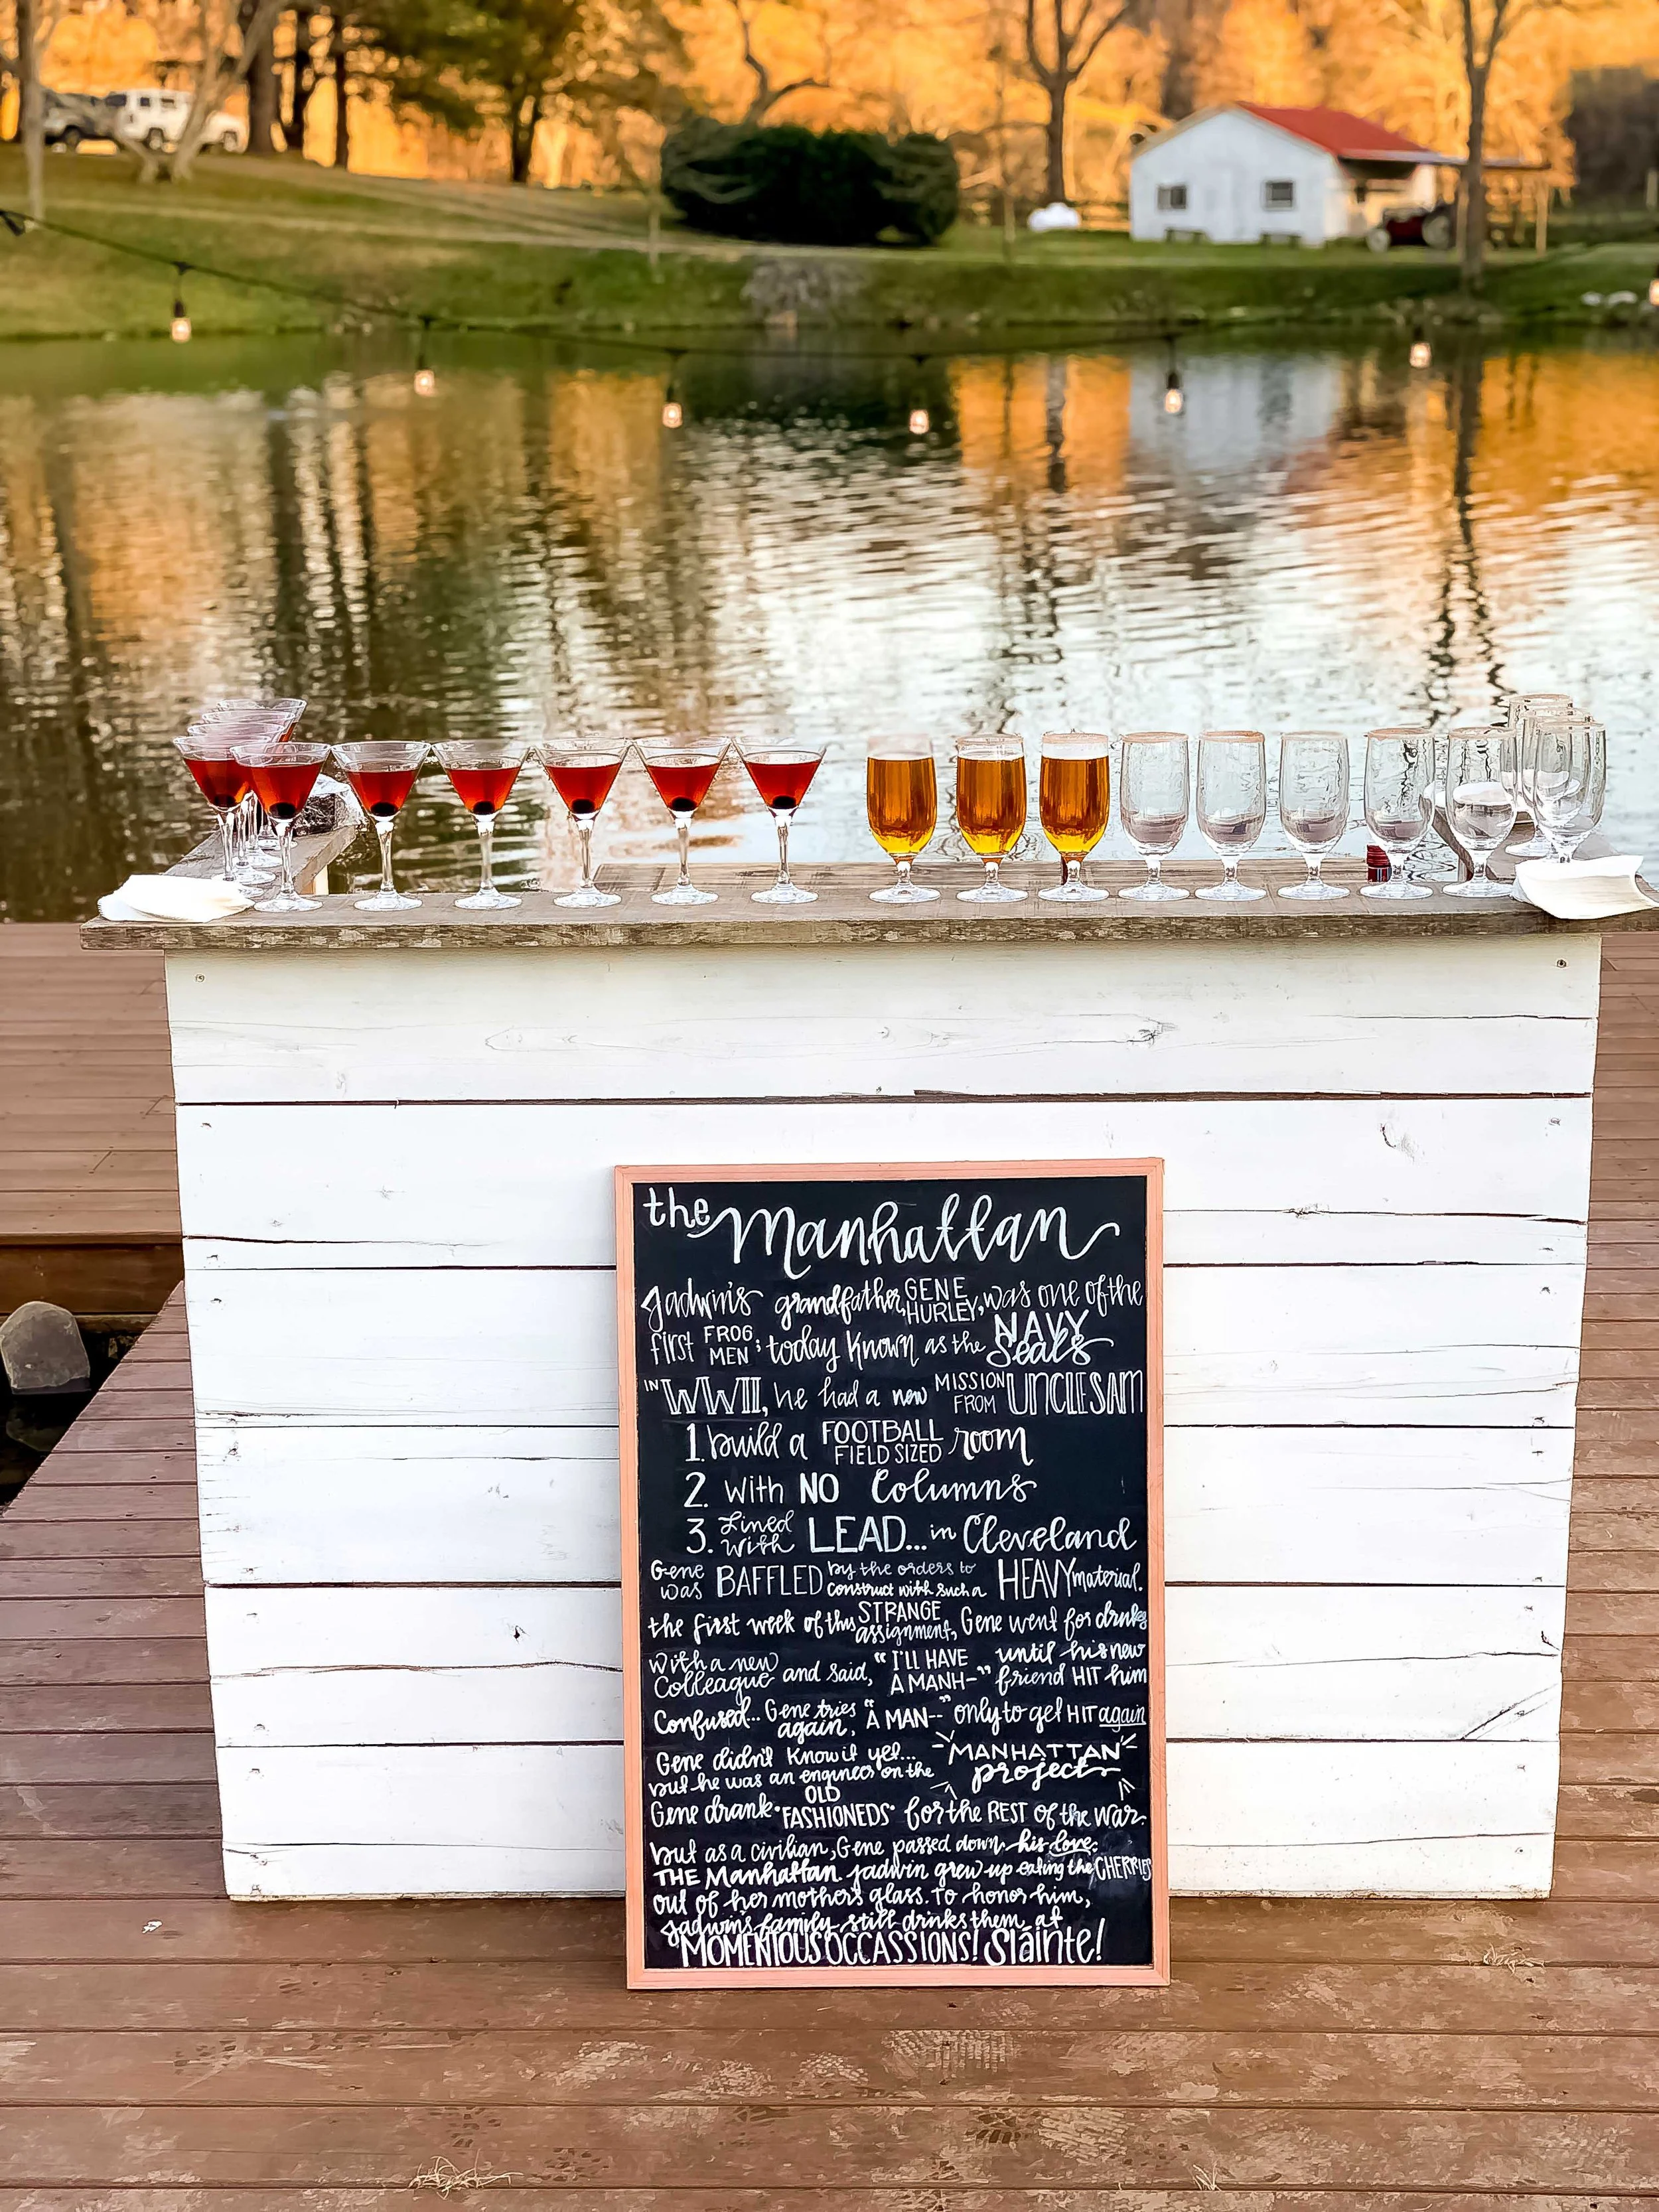 the Manhattan
Jadwin's grandfather, GENE HURLEY, was one of the
first FROG MEN; today known as the NAVY Seals
IN WWII, he had a new MISSION FROM UNCLE SAM
1. build a FOOTBALL FIELD SIZED room
2. With NO Columns
3. Lined with LEAD... in Cleveland
Gene was BAFFLED by the orders to construct with such a HEAVY material.
the first week of this STRANGE assignment, Gene went for drinks
With a new Colleague and said, "I'LL HAVE A MANH-" until his new friend HIT him
Confused... Gene tries again, "A MAN--" only to get HIT again
Gene didn't know it yet...
but he was an engineer on the MANHATTAN project
Gene drank "OLD FASHIONEDS" for the REST of the war.
but as a civilian, Gene passed down his love:
THE Manhattan. Jadwin grew up eating the CHERRIES
out of her mother's glass. To honor him,
Jadwin's family still drinks them at
MOMENTOUS OCCASSIONS! Sláinte!